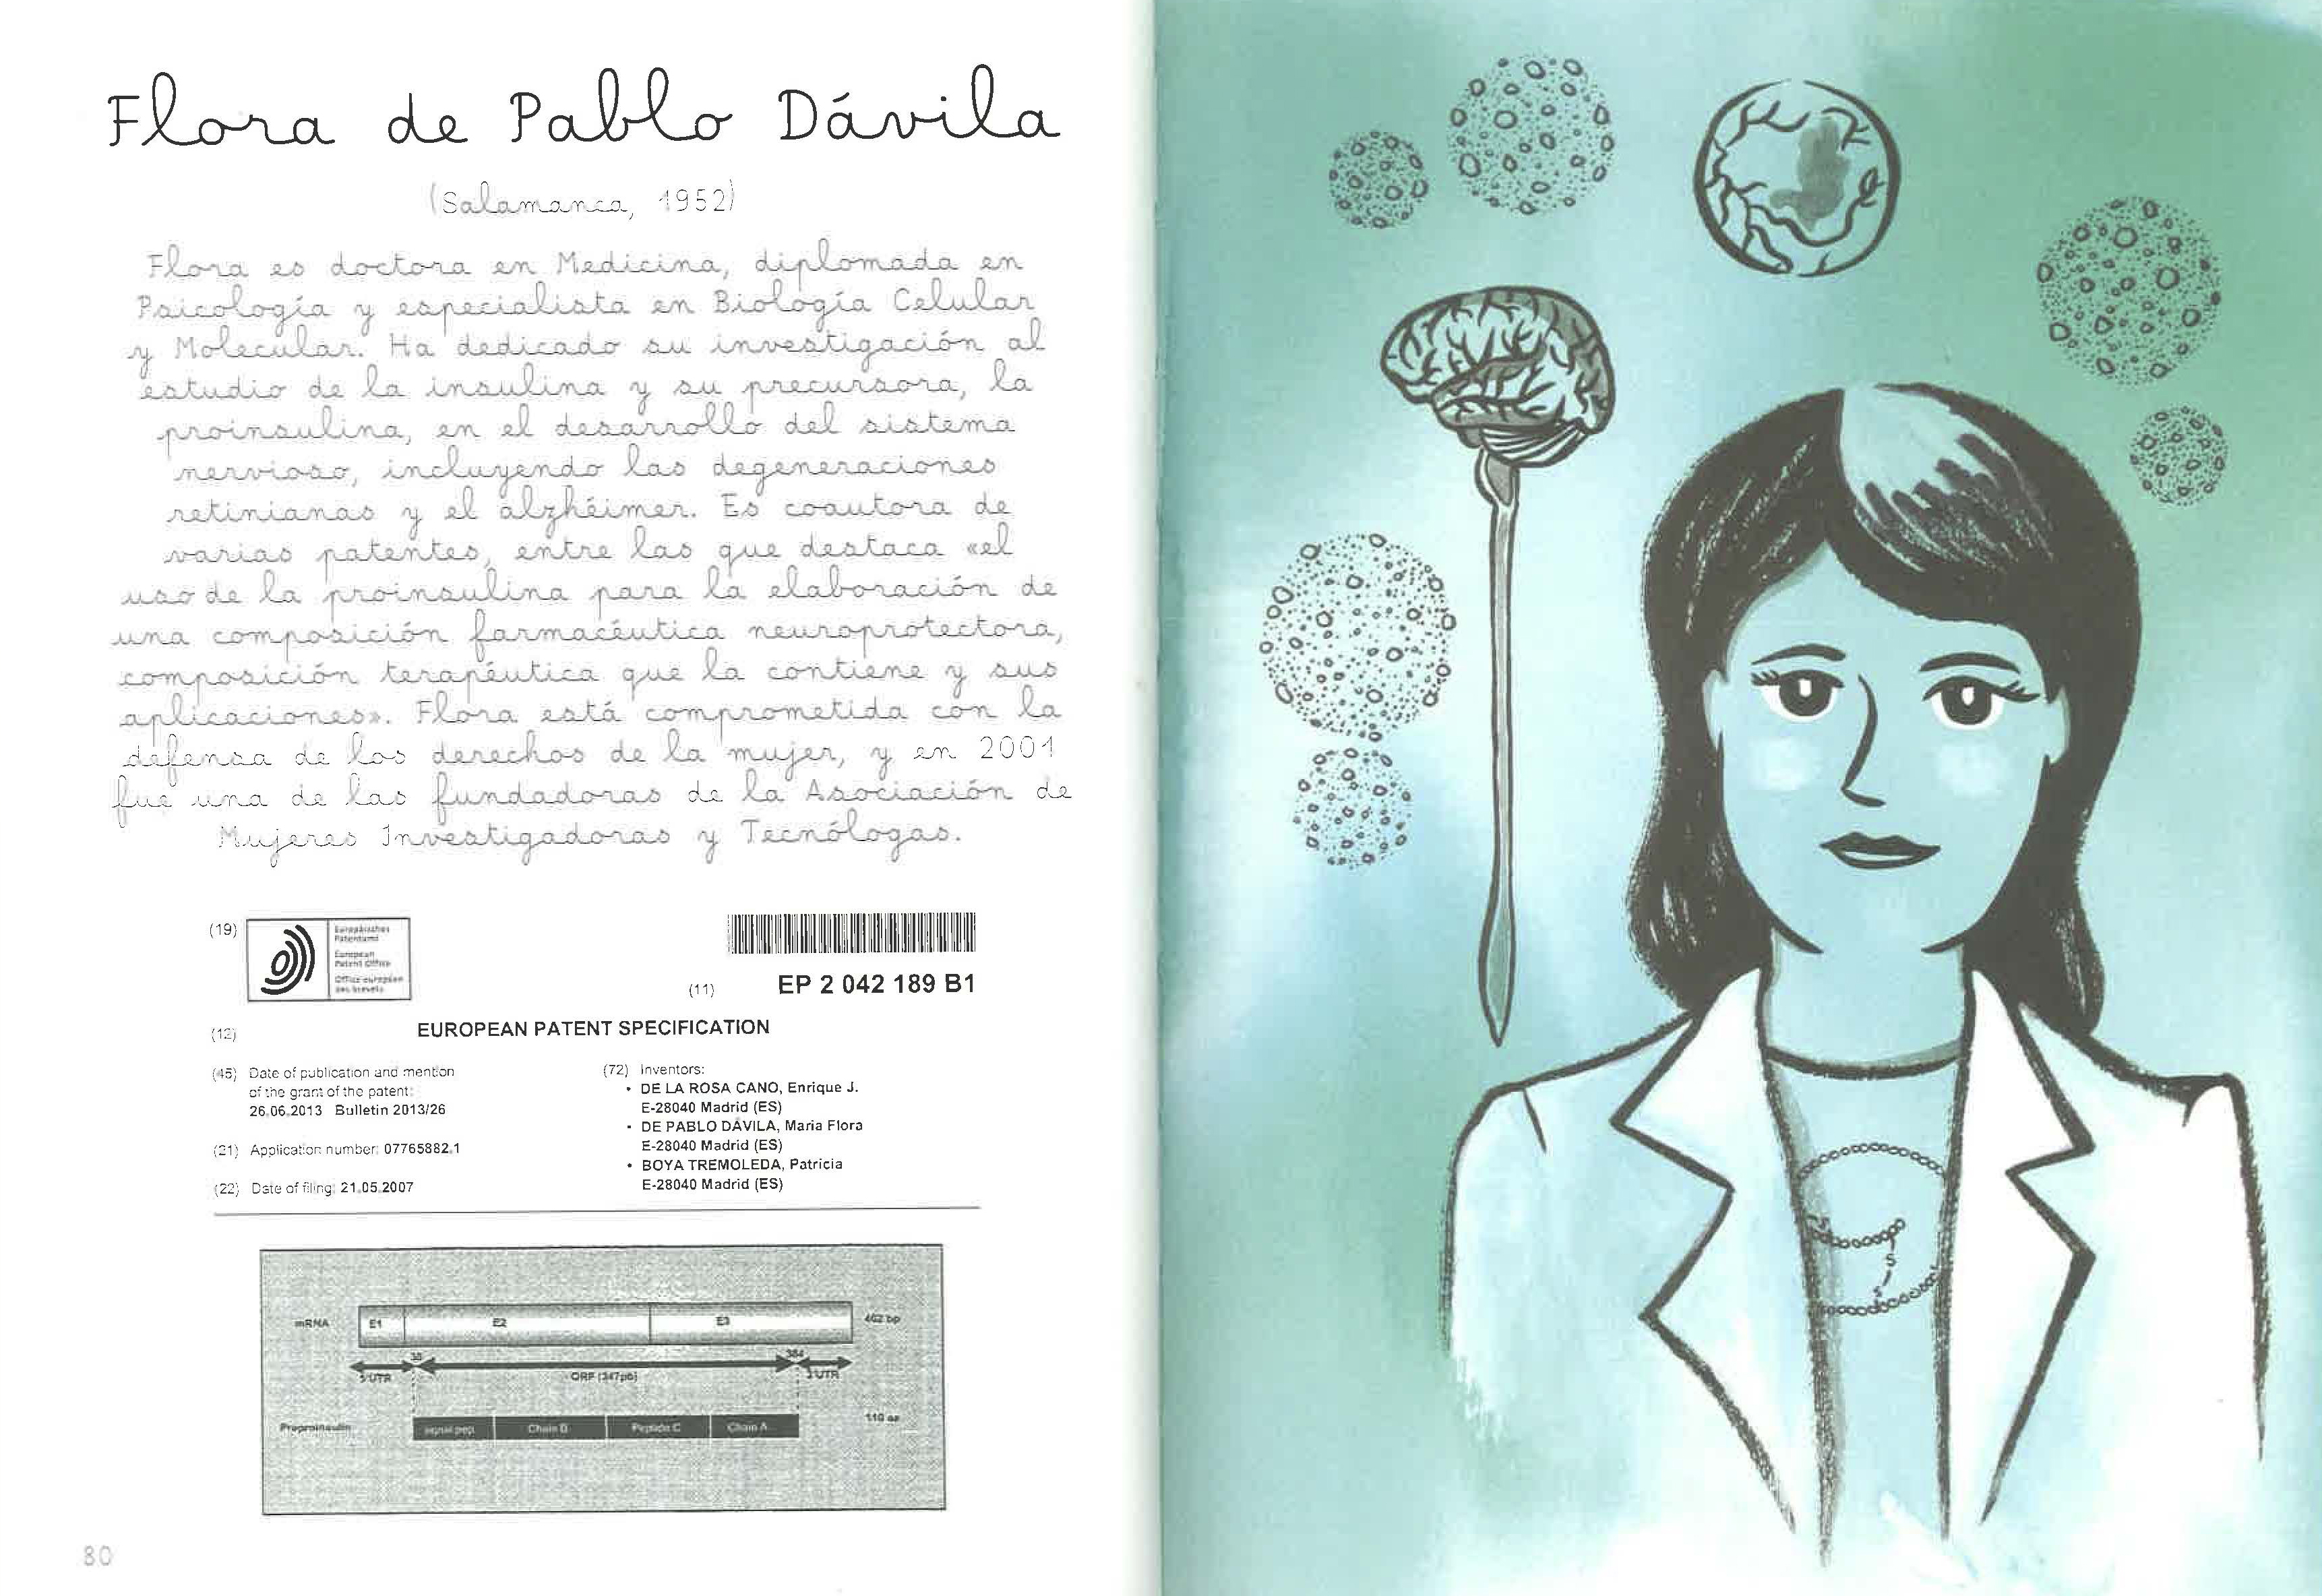 Flora de Pablo Dávila
(Salamanca, 1952)
Flora es doctora en Medicina, diplomada en
Psicología y especialista en Biología Celular
y Molecular. Ha dedicado su investigación al
estudio de la insulina y su precursora, la
proinsulina, en el desarrollo del sistema
nervioso, incluyendo las degeneraciones
retinianas y el alzhéimer. Es coautora de
varias patentes, entre las que destaca «el
uso de la proinsulina para la elaboración de
una composición farmacéutica neuroprotectora,
composición terapéutica que la contiene y sus
aplicaciones». Flora está comprometida con la
defensa de los derechos de la mujer, y en 2001
fue una de las fundadoras de la Asociación de
Mujeres Investigadoras y Tecnólogas.
(19)
Europäisches
Patentamt
European
Patent Office
Office européen
des brevets
(11) EP 2 042 189 B1
(12) EUROPEAN PATENT SPECIFICATION
(45) Date of publication and mention
of the grant of the patent:
26.06.2013 Bulletin 2013/26
(21) Application number: 07765882.1
(22) Date of filing: 21.05.2007
(72) Inventors:
• DE LA ROSA CANO, Enrique J.
E-28040 Madrid (ES)
• DE PABLO DÁVILA, Maria Flora
E-28040 Madrid (ES)
• BOYA TREMOLEDA, Patricia
E-28040 Madrid (ES)
mRNA E1 E2 E3 462 bp
38 384
5'UTR ORF (347pb) 3'UTR
Preproinsulin signal pep. Chain B Peptide C Chain A 110 aa
80
S
S